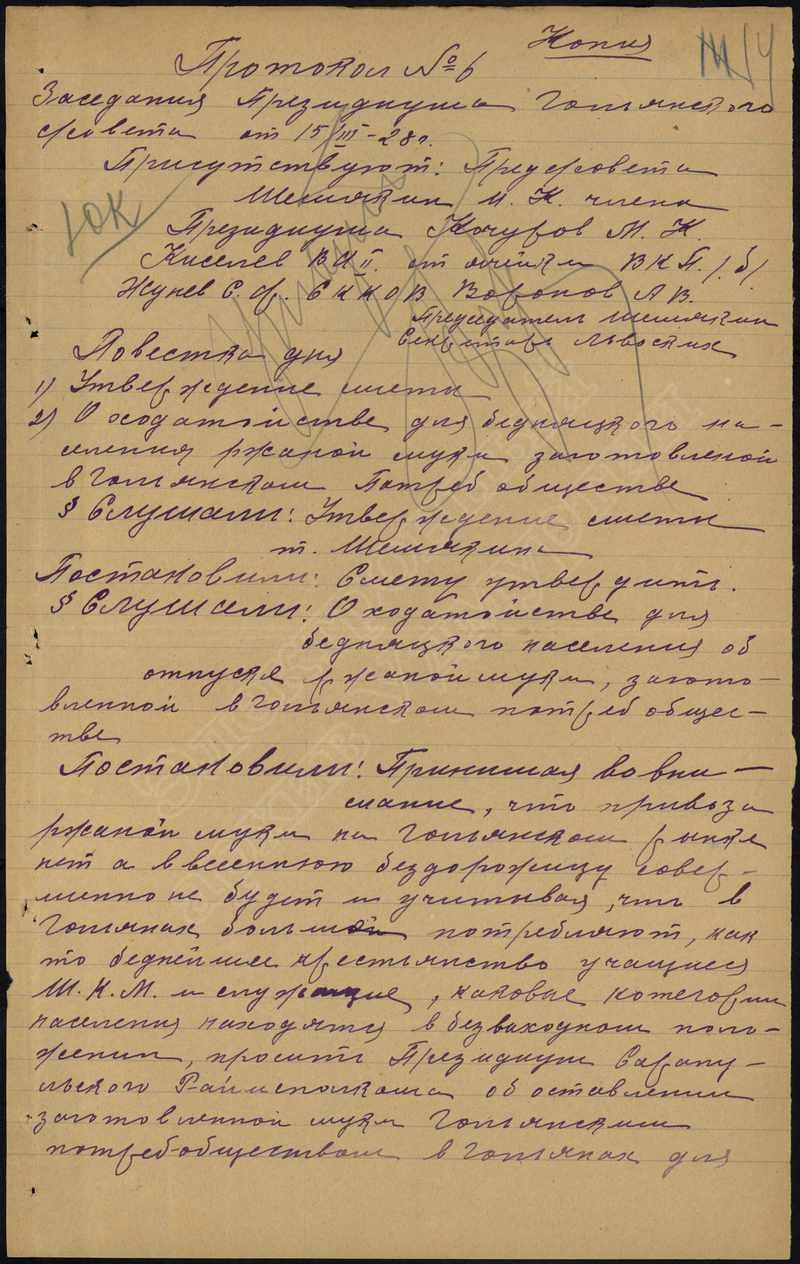 Копия
14
Протокол № 6
Заседания Президиума Гольянского
с/совета от 15/III-28 г.
Присутствуют: Предс/совета
Шемякин И. К. члена
ЮК
Президиума Кочуров М. К.
Киселев В И П. от ячейки В К П. /б/.
Жунев С. Ф. Е К К О В Воронов А В.
Председатель Шемякин
Секретарь Львоских
Повестка дня
1) Утверждение сметы
2) О ходатойстве для бедняцкого на-
селения ржаной муки заготовленой
в Гольянском Потреб обществе
§ Слушали: Утверждение сметы
т. Шемякина
Постановили: Смету утвердить.
§ Слушали: О ходатойстве для
бедняцкого населения об
отпуске ржаной муки, загото-
вленной в Гольянском потреб общес-
тве
Постановили: Принимая во вни-
мание, что привоза
ржаной муки на Гольянском рынке
нет а в весеннюю бездорожицу совер-
шенно не будет и учитывая, что в
Гольянах большой потребляют, как
то беднейшее крестьянство учащиеся
Ш. К. М. и служащие, каковые котегории
населения находятся в безвыходном поло-
жении, просить Президиум Сарапу-
льского Райисполкома об оставлении
заготовленной муки Гольянским
потреб-обществом в Гольянах для